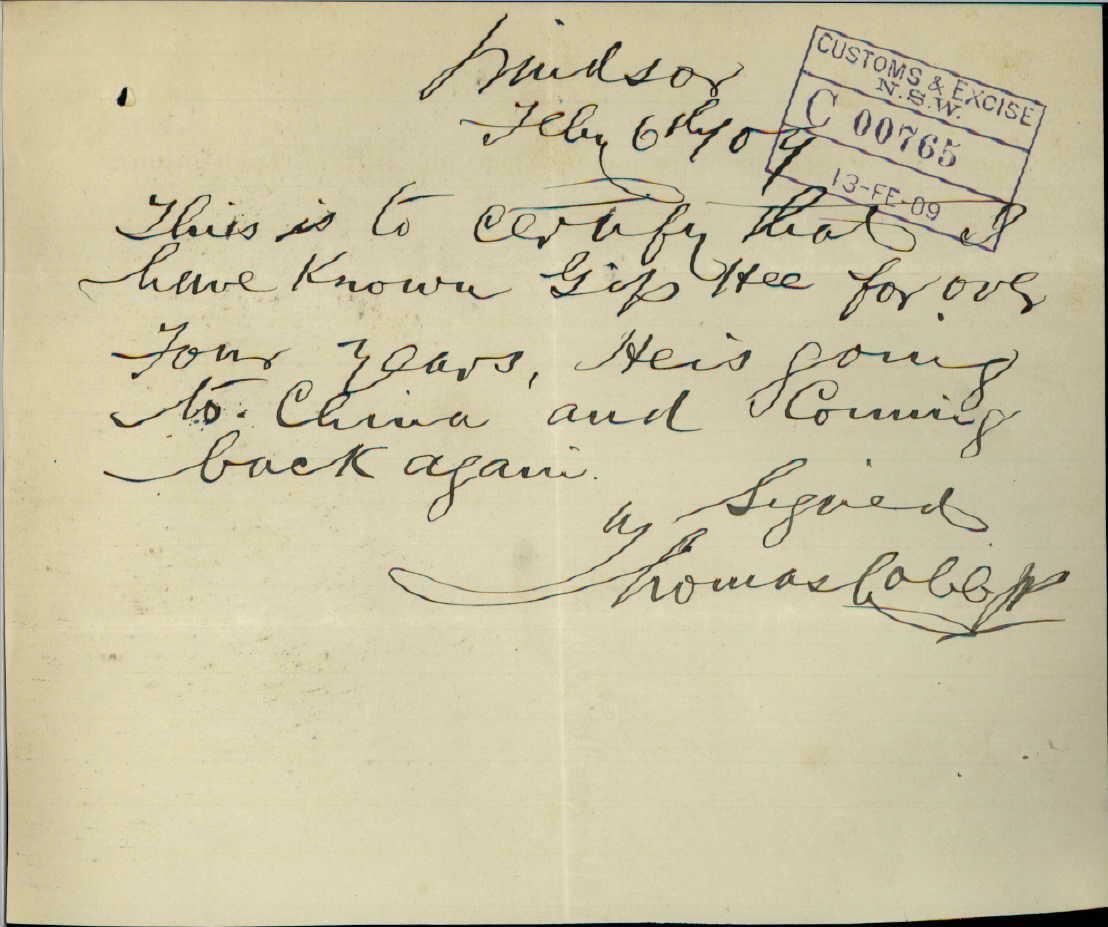 Windsor
Feby 6th/09
CUSTOMS & EXCISE
N.S.W.
C 00765
13-FE-09
This is to certify that I
have Known Gip Hee for over
Four years, He is going
to China and Coming
back again.
Signed
Thomas Cobb